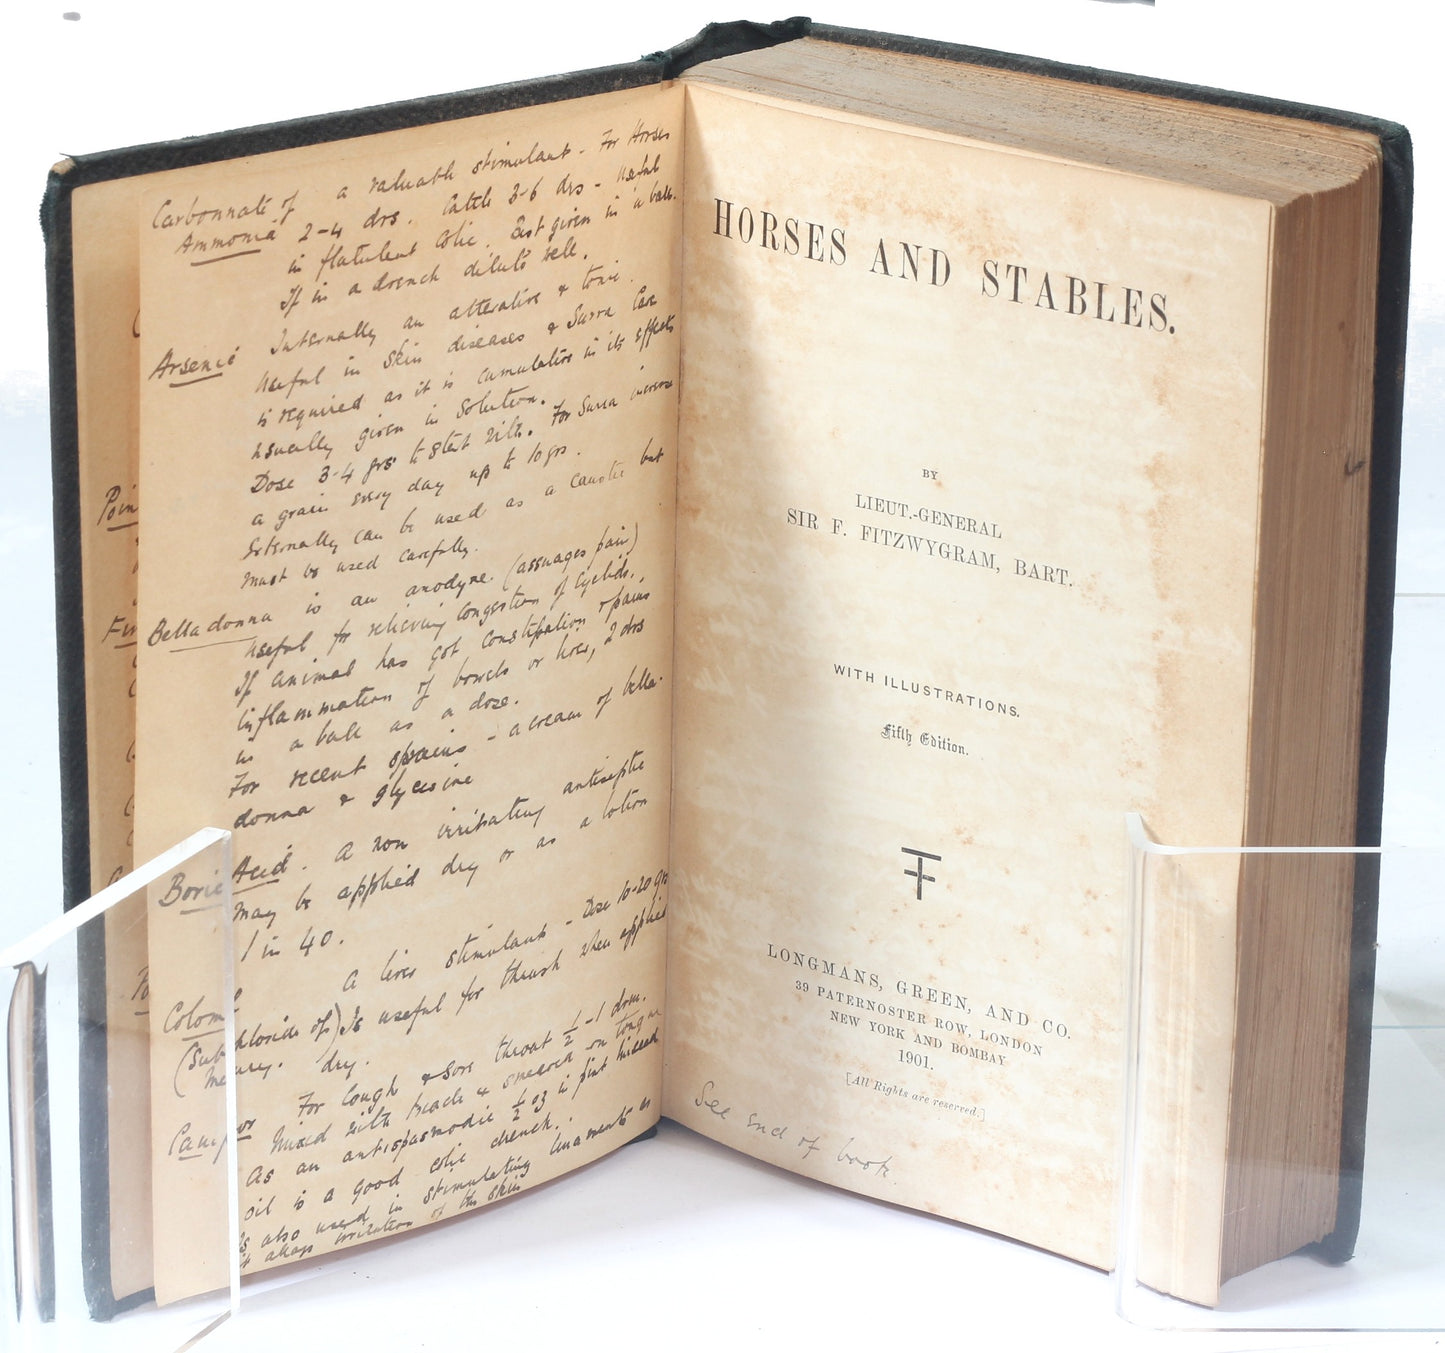 Carbonnate of a valuable stimulant - For Horses
Ammonia 2-4 drs. Cattle 3-6 drs - useful
in flatulent colic. Best given in a ball.
If in a drench dilute well.
Arsenic Internally an alterative & tonic.
Useful in skin diseases & Surra Care
is required as it is cumulative in its effects
usually given in solution.
Dose 3-4 grs to start with. For Surra increase
a grain every day up to 10 grs.
Externally can be used as a caustic but
must be used carefully.
Belladonna is an anodyne. (assuages pain)
Useful for relieving congestion of Eyelids.
If animal has got constipation & pains,
inflammation of bowels or liver, 2 drs
in a ball as a dose.
For recent sprains - a cream of bella-
donna & glycerine
Boric Acid. A non irritating antiseptic
may be applied dry or as a lotion
1 in 40.
Colomel A liver stimulant - Dose 10-20 grs
(Subchloride of) Is useful for thrush when applied
Mercury. dry.
Camphor For cough & sore throat ½-1 drm.
Mixed with treacle & smeared on tongue
As an antispasmodic ½ oz in pint linseed
oil is a good colic drench.
Is also used in stimulating linaments as
it allays irritation of the skin
Poin
HORSES AND STABLES.
BY
LIEUT.-GENERAL
SIR F. FITZWYGRAM, BART.
WITH ILLUSTRATIONS.
Fifth Edition.
LONGMANS, GREEN, AND CO.
39 PATERNOSTER ROW, LONDON
NEW YORK AND BOMBAY
1901.
[All Rights are reserved.]
See end of book